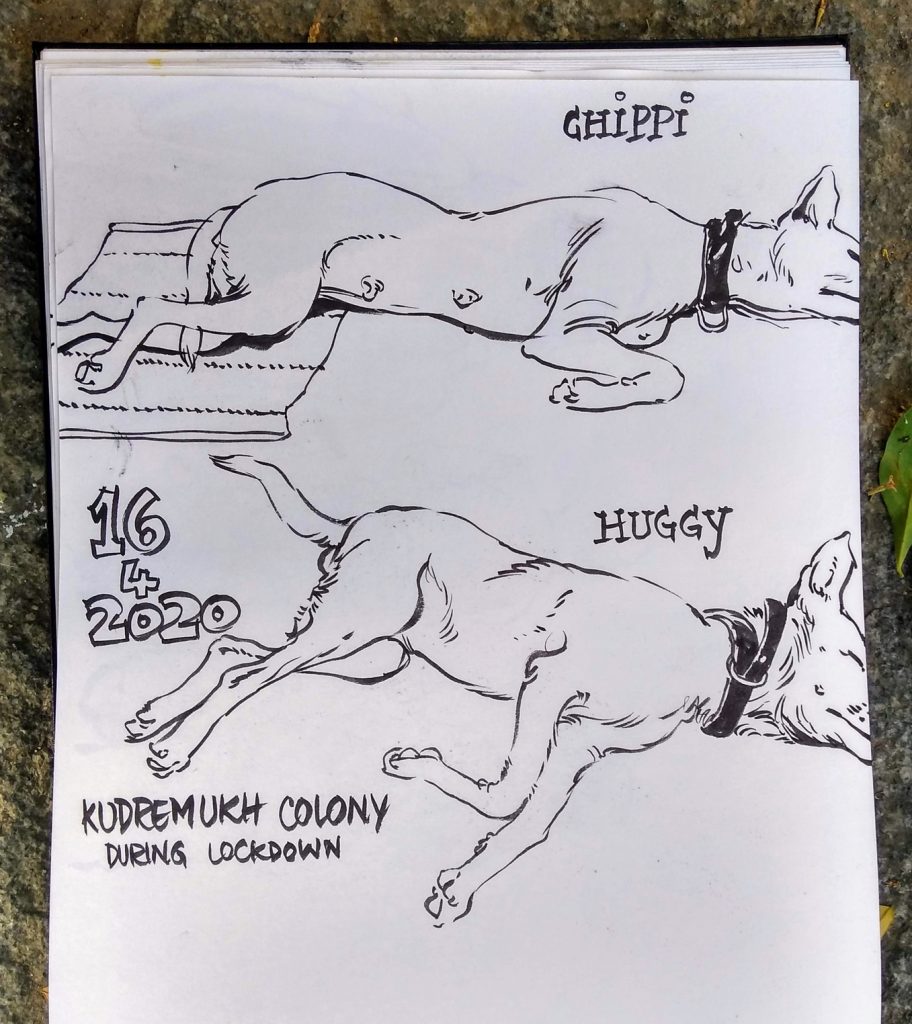 CHiPPi
HUGGY
16
4
2020
KUDREMUKH COLONY
DURING LOCKDOWN